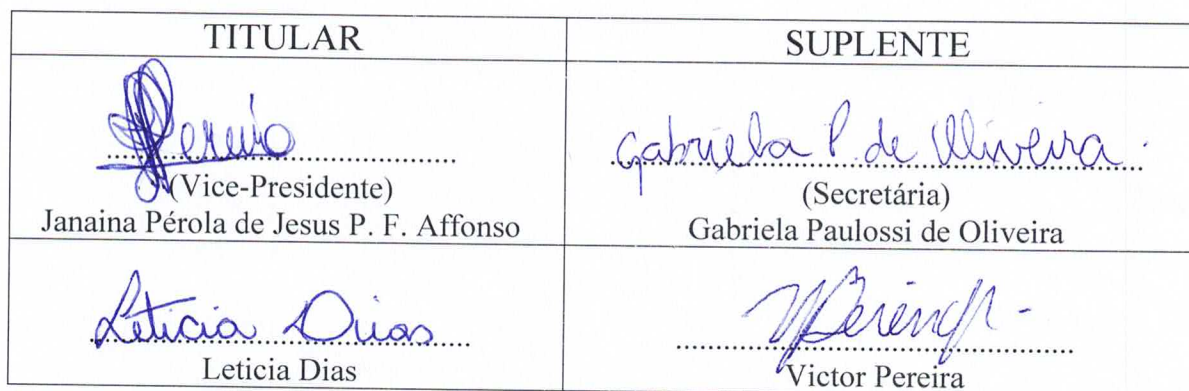 TITULAR
SUPLENTE
Pereira
(Vice-Presidente)
Janaina Pérola de Jesus P. F. Affonso
Gabriela P. de Oliveira
(Secretária)
Gabriela Paulossi de Oliveira
Leticia Dias
Leticia Dias
Victor Pereira